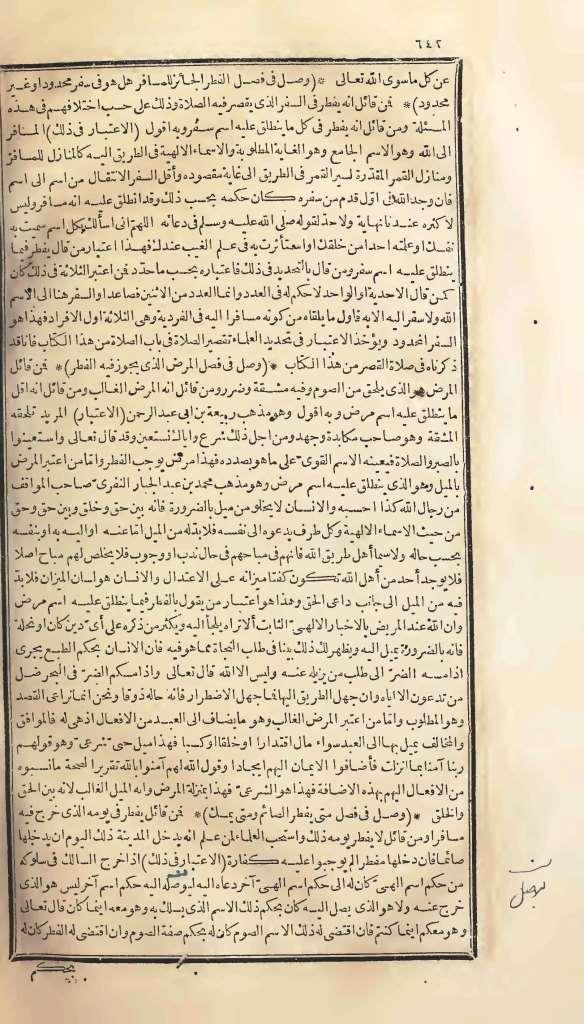 ٦٤٢
عن كل ما سوى الله تعالى * (وصل فى فصل الفطر الجائز للمسافر هل هو فى سفر محدود أو غير
محدود) * فمن قائل انه يفطر فى السفر الذى يقصر فيه الصلاة وذلك على حسب اختلافهم فى هذه
المسئلة ومن قائل انه يفطر فى كل ما ينطلق عليه اسم سفر وبه اقول (الاعتبار فى ذلك) المسافر
الى الله وهو الاسم الجامع وهو الغاية المطلوبة والاسماء الالهية فى الطريق اليه كالمنازل للمسافر
ومنازل القمر المقدّرة لسير القمر فى الطريق الى غاية مقصوده وأقل السفر الانتقال من اسم الى اسم
فان وجد الله فى اوّل قدم من سفره كان حكمه بحسب ذلك وقد انطلق عليه انه مسافر وليس
لاكثره عندنا نهاية ولا حدّ لقوله صلى الله عليه وسلم فى دعائه اللهمّ انى اسألك بكل اسم سميت به
نفسك او علمته احدا من خلقك او استأثرت به فى علم الغيب عندك فهذا اعتبار من قال يفطر فيما
ينطلق عليه اسم سفر ومن قال بالتحديد فى ذلك فاعتباره بحسب ما حدّد فمن اعتبر الثلاثة فى ذلك كان
كمن قال الاحدية او الواحد لا حكم له فى العدد وانما العدد من الاثنين فصاعدا والسفر هنا الى الاسم
الله ولا سفر اليه الا به فاول ما يلقاه من كونه مسافرا اليه فى الفردية وهى الثلاثة اول الافراد فهذا هو
السفر المحدود ويؤخذ الاعتبار فى تحديد العلماء تقصير الصلاة فى باب الصلاة من هذا الكتاب فانا قد
ذكرناه فى صلاة القصر من هذا الكتاب * (وصل فى فصل المرض الذى يجوز فيه الفطر) * فمن قائل
المرض هو الذى يلحق من الصوم وفيه مشقة وضرر ومن قائل انه المرض الغالب ومن قائل انه اقل
ما ينطلق عليه اسم مرض وبه اقول وهو مذهب ربيعة بن ابى عبد الرحمن (الاعتبار) المريد تلحقه
المشقة وهو صاحب مكابدة وجهد ومن اجل ذلك شرع واياك نستعين وقد قال تعالى واستعينوا
بالصبر والصلاة فيعينه الاسم القوىّ على ما هو بصدده فهذا مرض يوجب الفطر وامّا من اعتبر المرض
بالميل وهو الذى ينطلق عليه اسم مرض وهو مذهب محمد بن عبد الجبار النفرىّ صاحب المواقف
من رجال الله كذا احسبه والانسان لا يخلو من ميل بالضرورة فانه بين حق وخلق وبين حق وحق
من حيث الاسماء الالهية وكل طرف يدعوه الى نفسه فلا بدّ له من الميل امّا عنه او اليه به او بنفسه
بحسب حاله ولا سيما أهل طريق الله فانهم فى مباحهم فى حال ندب او وجوب فلا يخلص لهم مباح اصلا
فلا يوجد أحد من أهل الله تكون كفتا ميزانه على الاعتدال والانسان هو لسان الميزان فلا بدّ
فيه من الميل الى جانب داعى الحق وهذا هو اعتبار من يقول بالفطر فيما ينطلق عليه اسم مرض
وان الله عند المريض بالاخبار الالهىّ الثابت ألا تراه يلجأ اليه ويكثر من ذكره على أى دين كان او نحلة
فانه بالضرورة يميل اليه ويظهر لك ذلك بينا فى طلب النجاة مما هو فيه فان الانسان بحكم الطبع يجرى
اذا مسه الضرّ الى طلب من يزيله عنه وليس الا الله قال تعالى واذا مسكم الضرّ فى البحر ضل
من تدعون الا اياه وان جهل الطريق اليها فما جهل الاضطرار فانه حاله ذوقا ونحن انما نراعى القصد
وهو المطلوب وامّا من اعتبر المرض الغالب وهو ما يضاف الى العبد من الافعال اذ هى له فالموافق
والمخالف يميل بها الى العبد سواء مال اقتدارا او خلقا او كسبا فهذا ميل حسىّ شرعىّ وهو قولهم
ربنا آمنا بما انزلت فأضافوا الايمان اليهم ايجادا وقول الله لهم آمنوا بالله تقريرا لصحة ما نسبوه
من الافعال اليهم بهذه الاضافة فهذا هو الشرعىّ فهذا بمنزلة المرض وانه الميل الغالب لانه بين الحق
والخلق * (وصل فى فصل متى يفطر الصائم ومتى يمسك) * فمن قائل يفطر فى يومه الذى خرج فيه
مسافرا ومن قائل لا يفطر يومه ذلك واستحب العلماء لمن علم انه يدخل المدينة ذلك اليوم ان يدخلها
صائما فان دخلها مفطرا لم يوجبوا عليه كفارة (الاعتبار فى ذلك) اذا خرج السالك فى سلوكه
من حكم اسم الهىّ كان له الى حكم اسم الهىّ آخر دعاه اليه ليوصله اليه حكم اسم آخر ليس هو الذى
خرج عنه ولا هو الذى يصل اليه كان بحكم ذلك الاسم الذى يسلك به وهو معه اينما كان قال تعالى
وهو معكم اينما كنتم فان اقتضى له ذلك الاسم الصوم كان له بحكم صفة الصوم وان اقتضى له الفطر كان له
بحكم